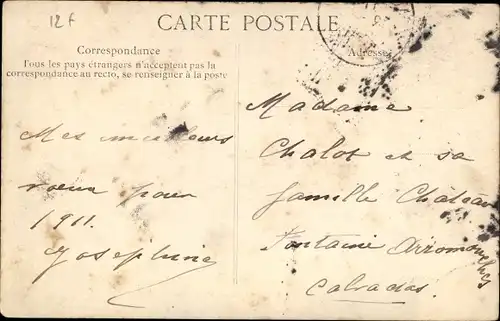 12 F
CARTE POSTALE
Correspondance
Tous les pays étrangers n'acceptent pas la
correspondance au recto, se renseigner à la poste
Adresse
Mes meilleurs
voeux pour
1911.
Josephine
Madame
Chalot et sa
famille Château
Fontaine Arromanches
Calvados